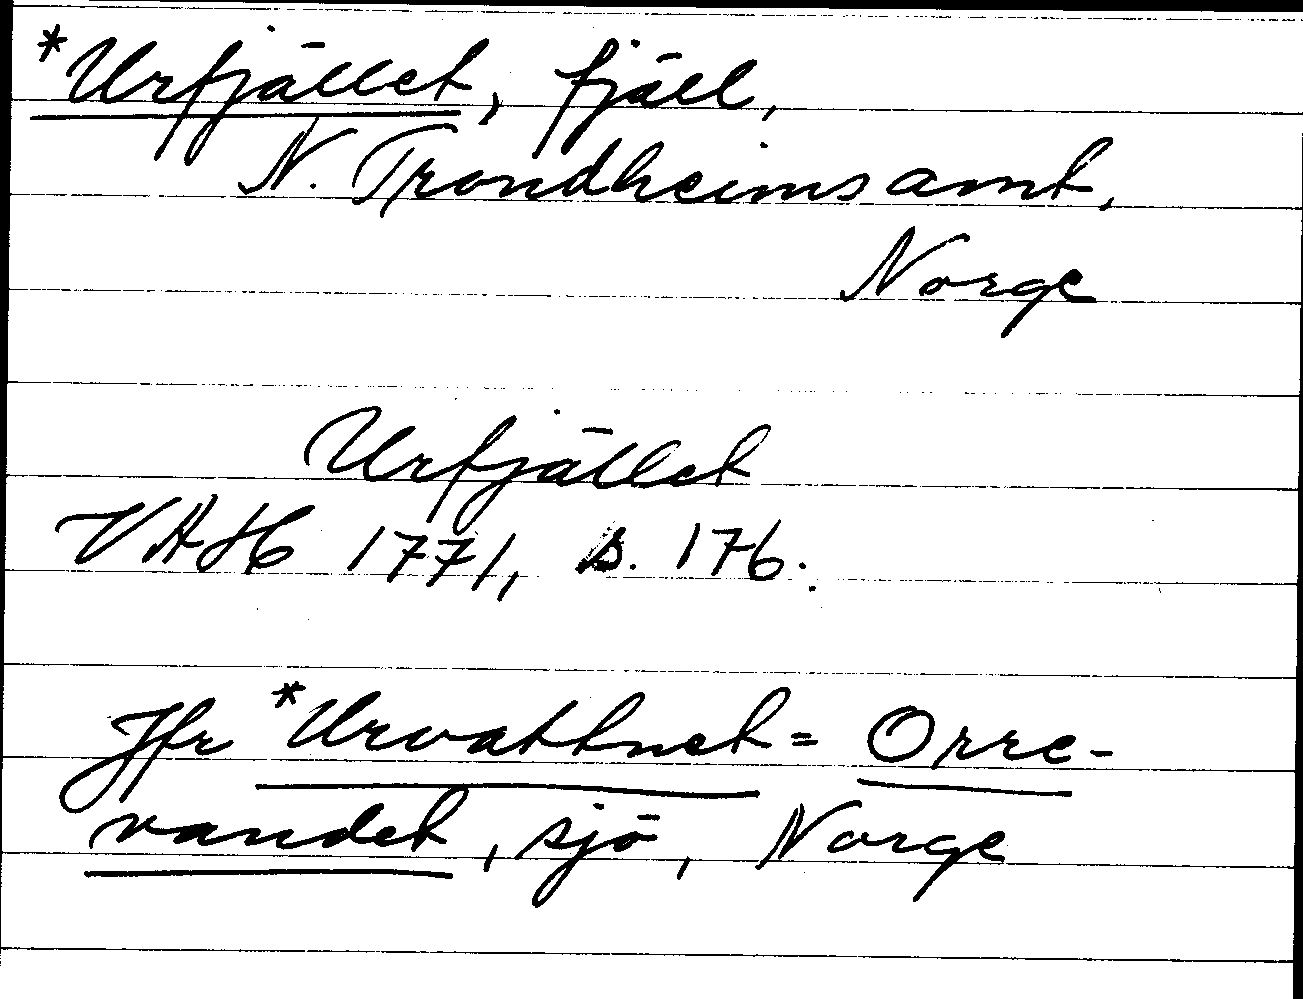 *Urfjället, fjäll,
N. Trondheims amt,
Norge
Urfjället
VAH 1771, s. 176.
Jfr *Urvattnet = Orre-
vandet, sjö, Norge